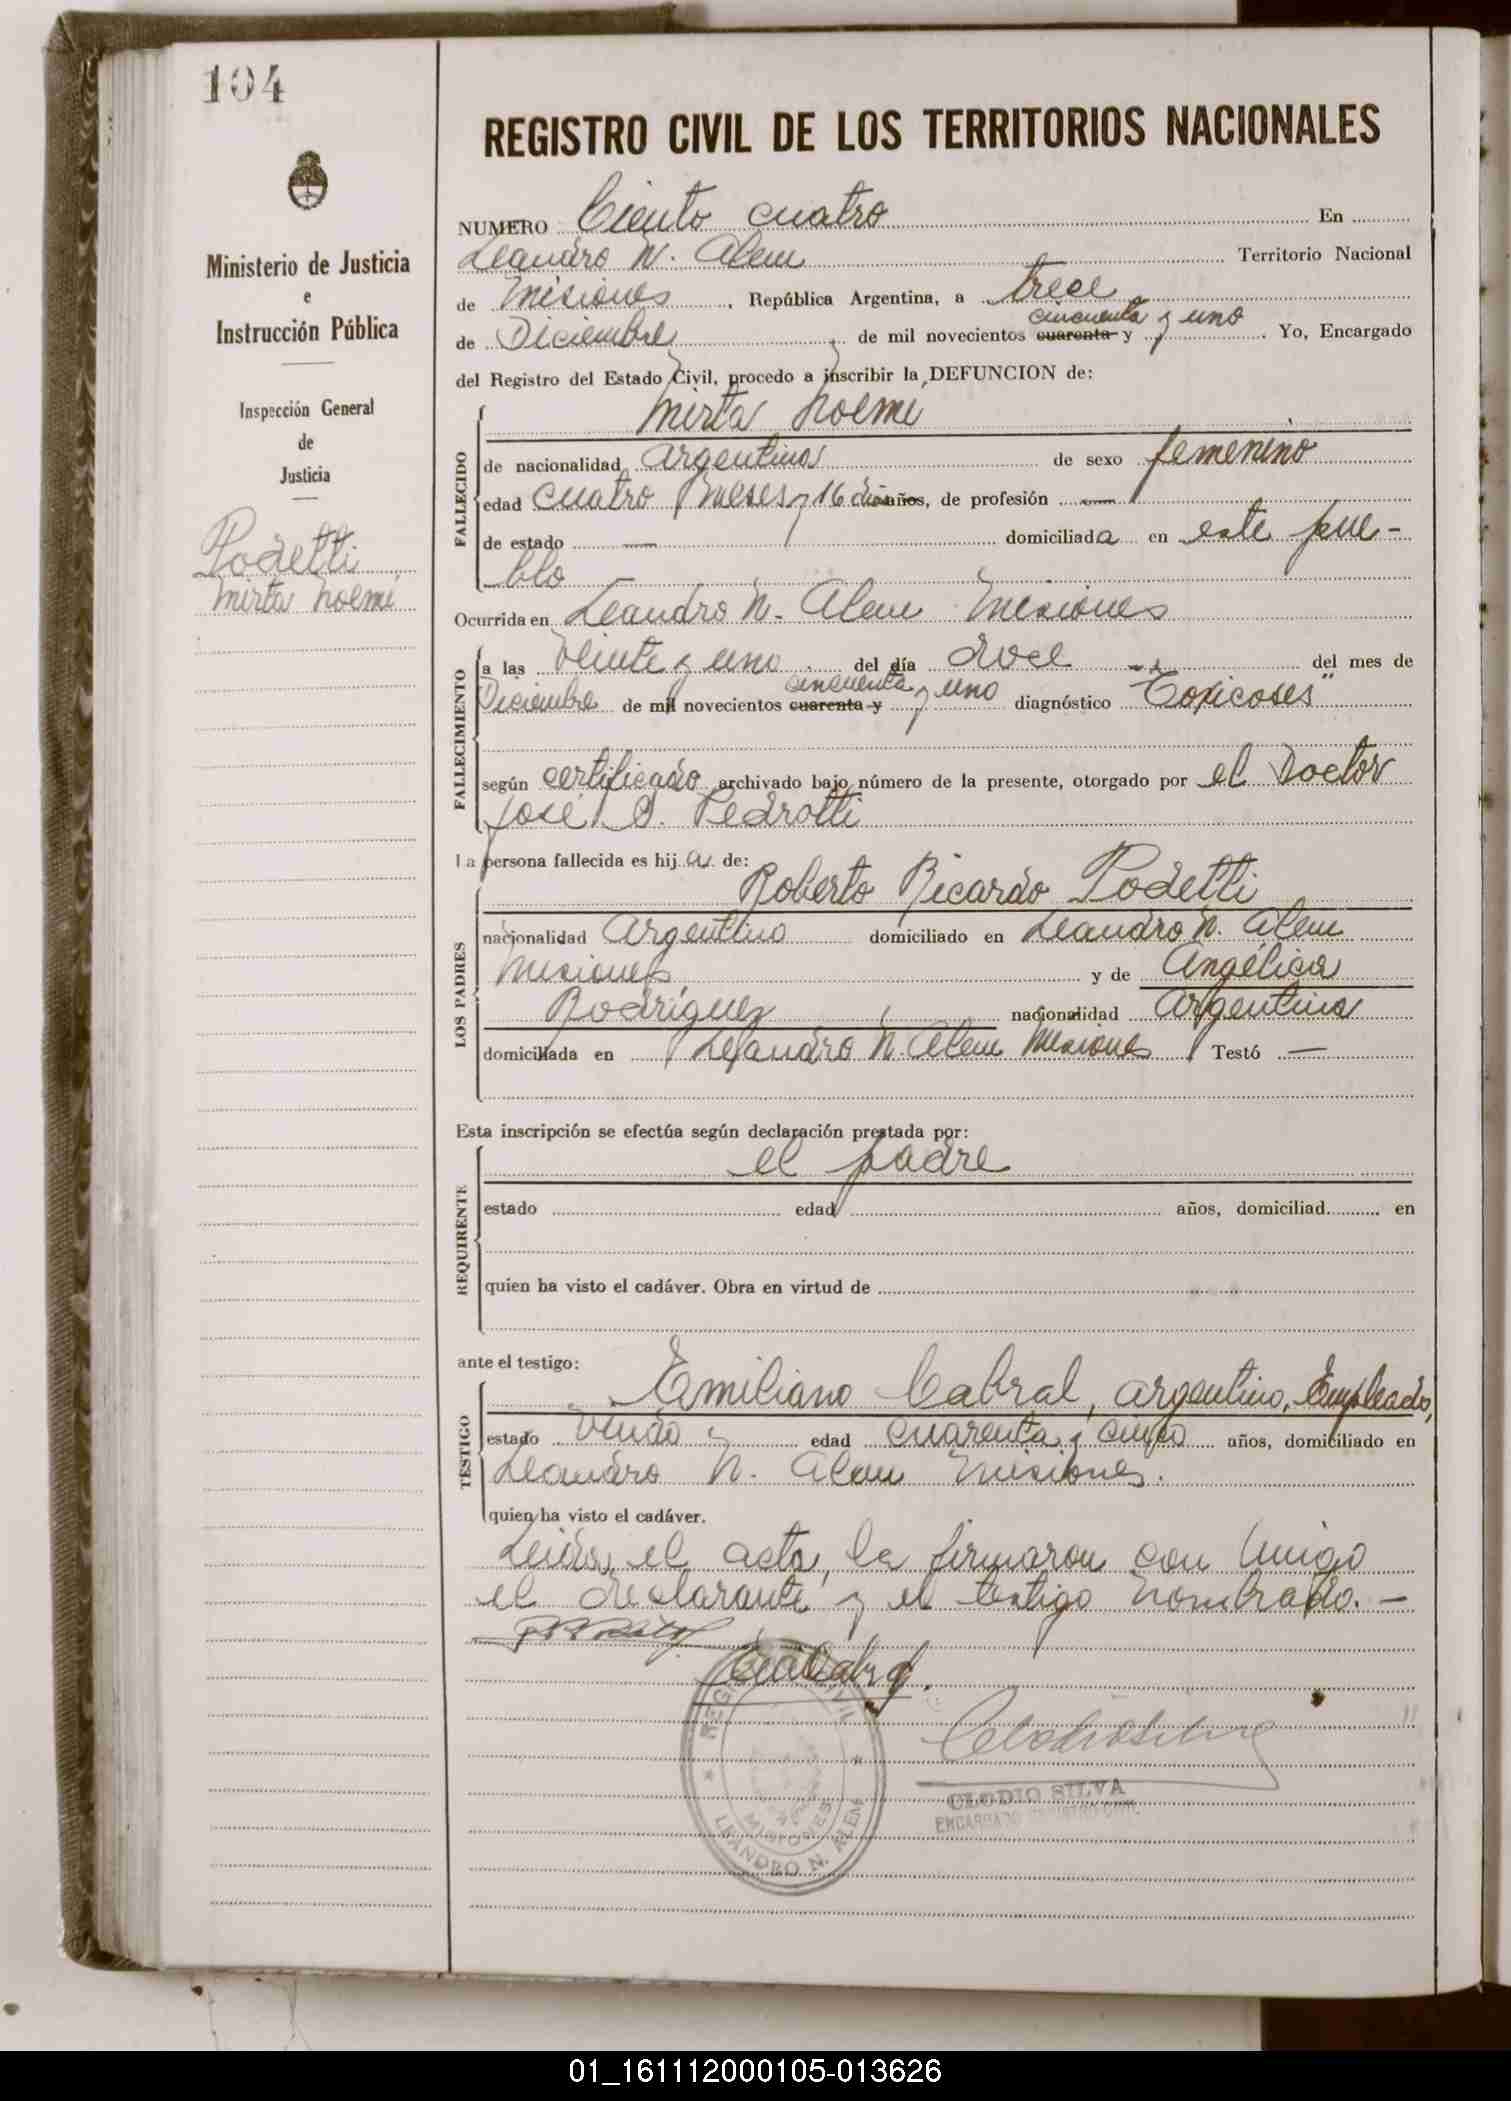 104
Ministerio de Justicia
e
Instrucción Pública
Inspección General
de
Justicia
Podetti
Mirta Noemi
REGISTRO CIVIL DE LOS TERRITORIOS NACIONALES
NUMERO Ciento cuatro En
Leandro N. Alem Territorio Nacional
de Misiones, República Argentina, a trece
de Diciembre de mil novecientos cuarenta y cincuenta y uno. Yo, Encargado
del Registro del Estado Civil, procedo a inscribir la DEFUNCION de:
FALLECIDO
Mirta Noemi
de nacionalidad Argentina de sexo femenino
edad cuatro meses y 16 dias años, de profesión —
de estado — domiciliada en este pue-
blo
Ocurrida en Leandro N. Alem Misiones
FALLECIMIENTO
a las Veinte y uno del día doce del mes de
Diciembre de mil novecientos cuarenta y cincuenta y uno diagnóstico "Toxicoses"
según certificado archivado bajo número de la presente, otorgado por el Doctor
José Pedrotti
La persona fallecida es hija de:
LOS PADRES
Roberto Ricardo Podetti
nacionalidad Argentino domiciliado en Leandro N. Alem
Misiones y de Angélica
Rodríguez nacionalidad Argentina
domiciliada en Leandro N. Alem Misiones Testó —
Esta inscripción se efectúa según declaración prestada por:
REQUIRENTE
el padre
estado edad años, domiciliad en
quien ha visto el cadáver. Obra en virtud de
ante el testigo:
TESTIGO
Emiliano Cabral, argentino, Empleado,
estado Viudo edad cuarenta y cinco años, domiciliado en
Leandro N. Alem Misiones.
quien ha visto el cadáver.
Leida el acta, la firmaron con migo
el declarante y el testigo nombrado. —
Cabral.
REGISTRO CIVIL
MISIONES
LEANDRO N. ALEM
Clodio Silva
CLODIO SILVA
ENCARGADO REGISTRO CIVIL
01_161112000105-013626